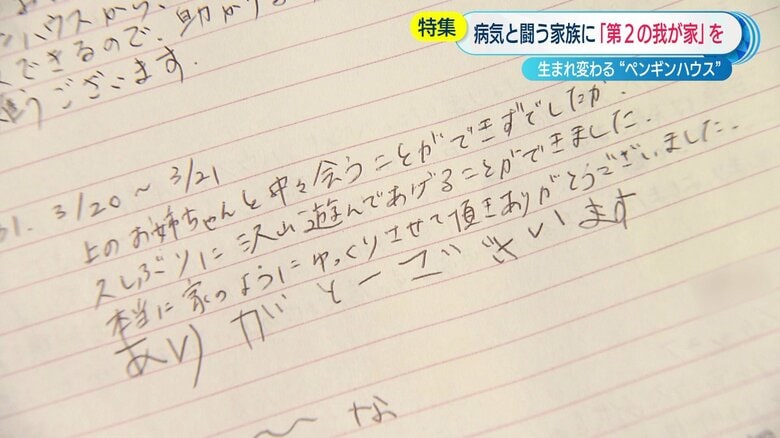 特集
病気と闘う家族に「第2の我が家」を
生まれ変わる“ペンギンハウス”
ンハウスから、
できるので、助かり
うございます。
31. 3/20～3/21
上のお姉ちゃんと中々会うことができずでしたが、
久しぶりに沢山遊んであげることができました。
本当に家のようにゆっくりさせて頂きありがとうございました。
ありがとーございます
～ な